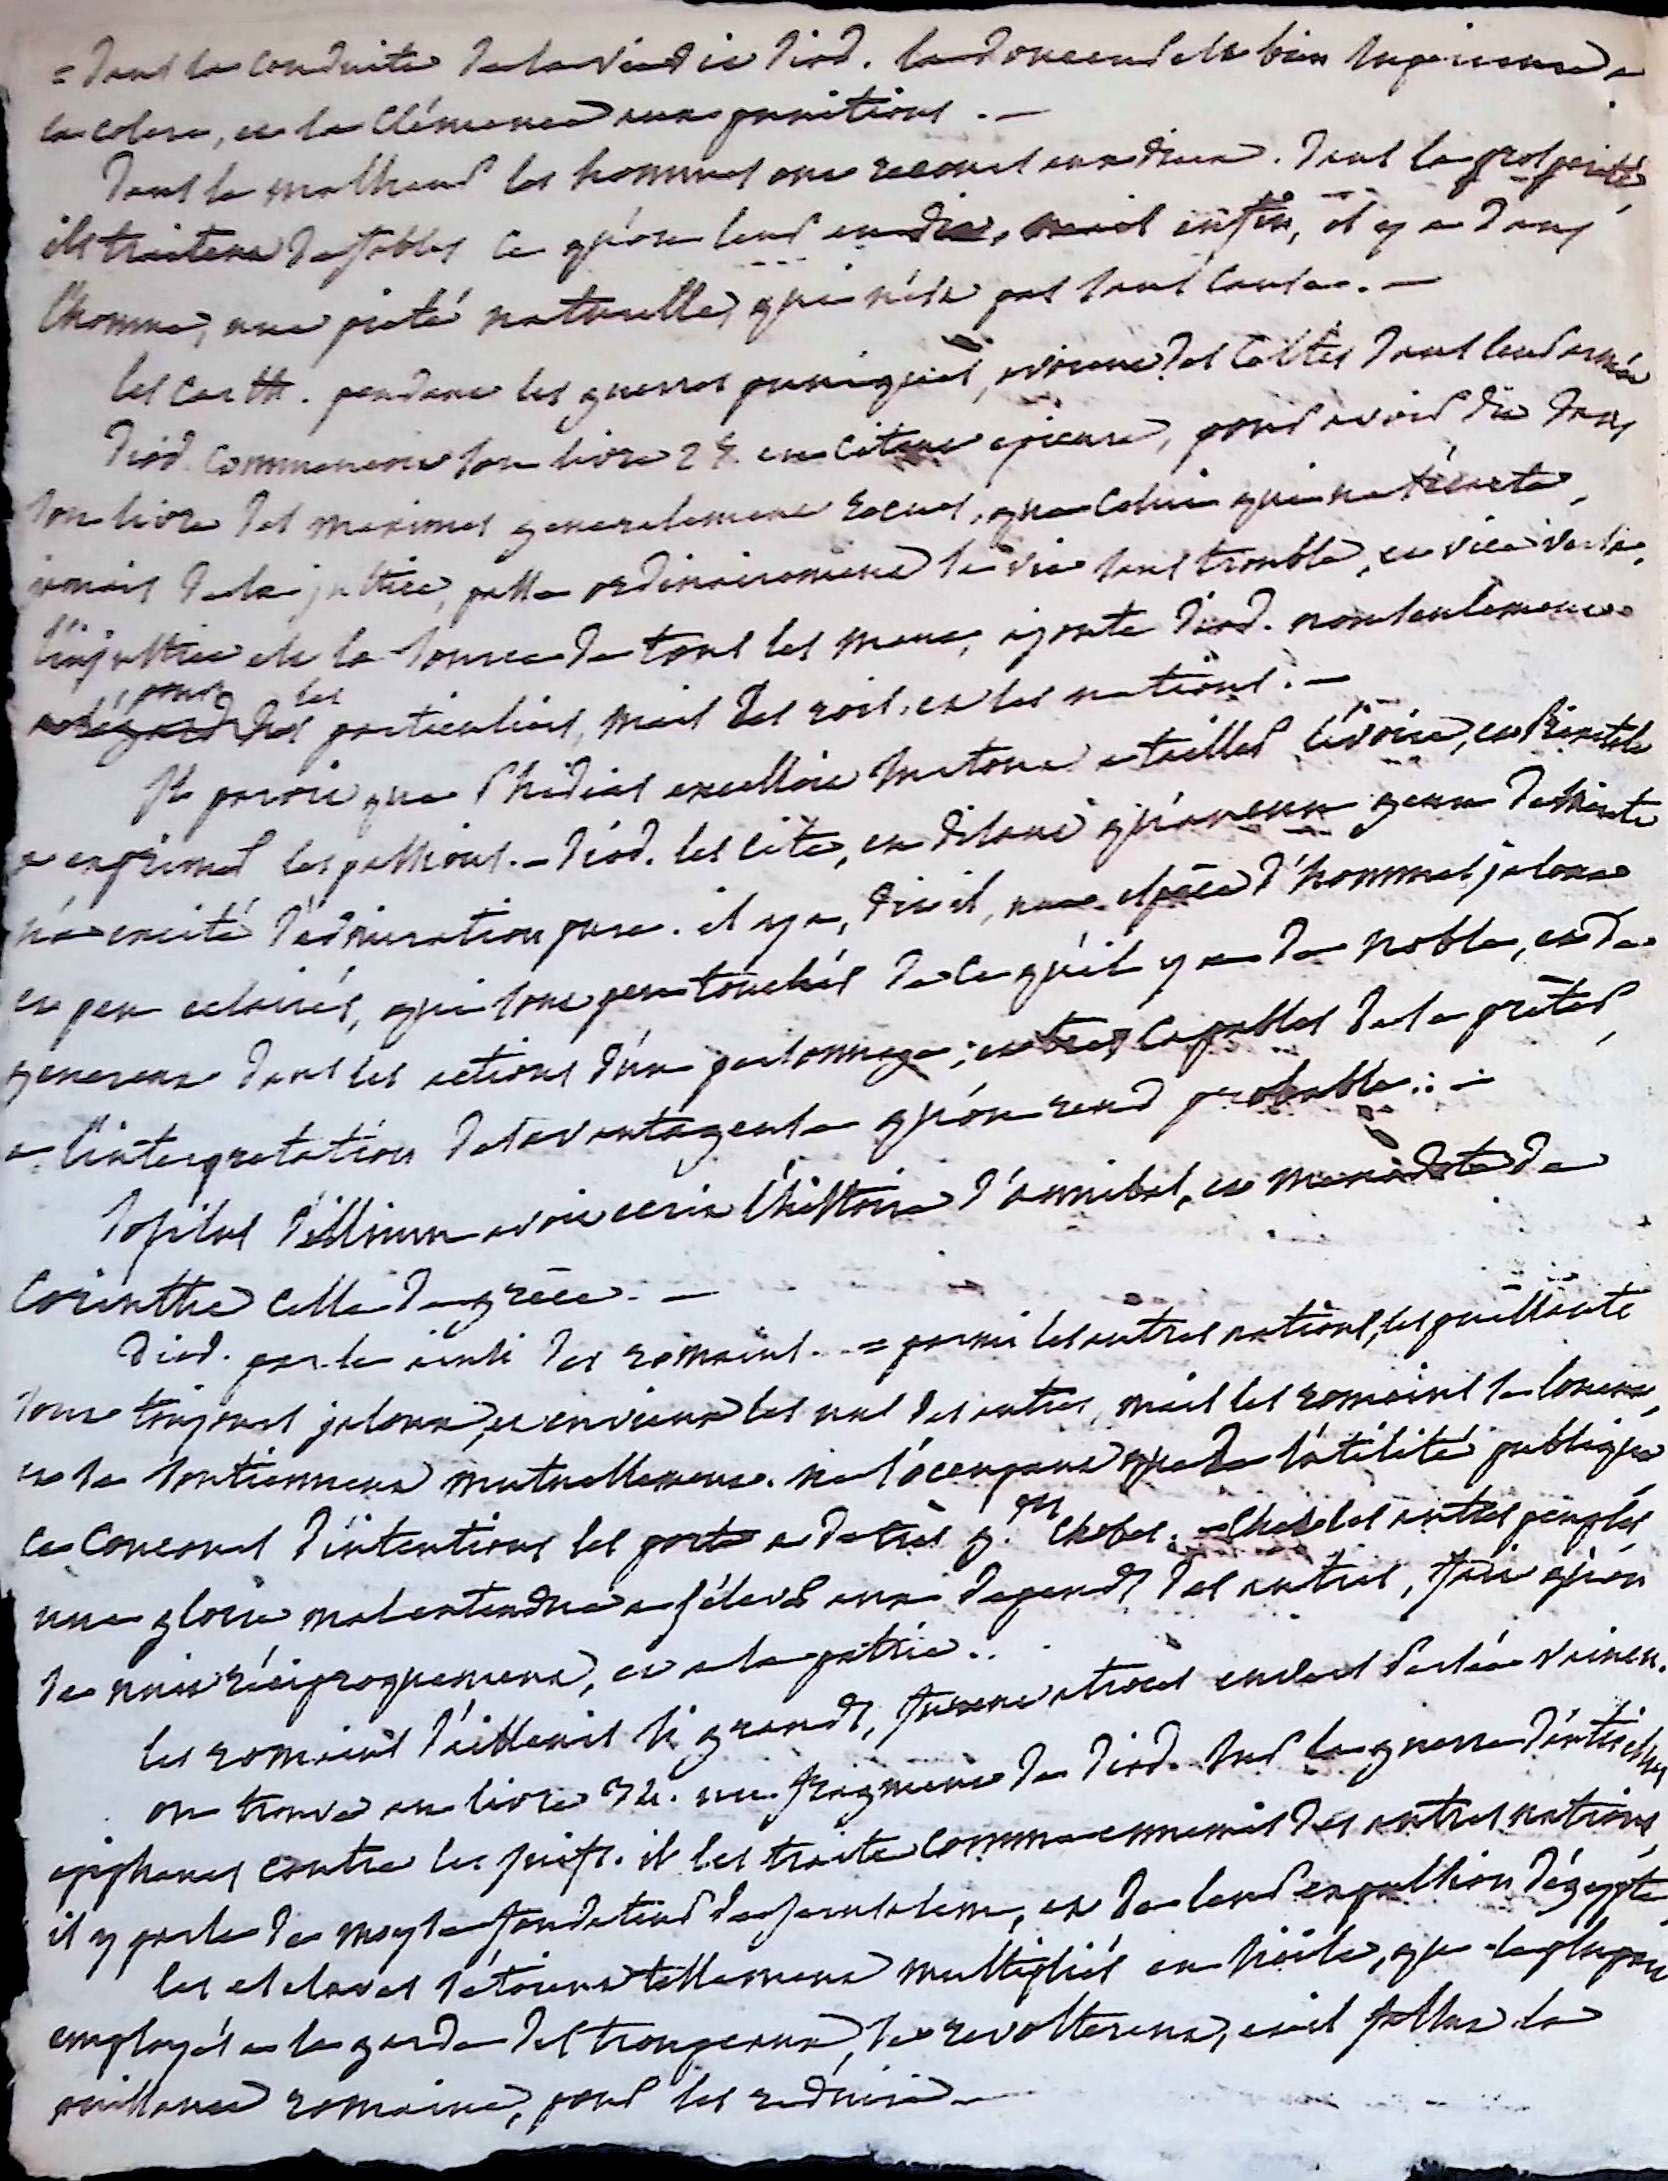 = dans la conduite de la vie dit diod. la douceur est bien superieure a
la colere, et la clémence aux punitions. —
dans le malheur les hommes ont recours aux dieux. dans la prosperité,
ils traitent de fables ce qu'on leur en dit, mais enfin, il y a dans
l'homme, une pieté naturelle, qui n'est pas sans cause. —
les Carth. pendant les guerres puniques, avoient des Celtes dans leur armée
diod. commencoit son livre 25. en citant epicure, pour avoir dit dans
son livre des maximes generalement recues, que celui qui ne s'écarte,
jamais de la justice, passe ordinairement sa vie sans trouble, et vice versa.
l'injustice est la source de tous les maux, ajoute diod. non seulement
pour les particuliers, mais les rois, et les nations. —
Il paroit que Phidias excelloit surtout a tailler l'ivoire, et Praxitele
a exprimer les passions. — diod. les cite, en disant qu'aucun genre de merite
n'a excité l'admiration pure. il y a, dit il, une espèce d'hommes jaloux
et peu eclairés, qui sont peu touchés de ce qu'il y a de noble, et de
genereux dans les actions d'un personnage; et tres capables de se prêter,
a l'interpretation desavantageuse qu'on rend probable. —
Sosilus d'illium avoit ecrit l'histoire d'annibal, et menodote de
Corinthe celle de grèce. —
Diod. parle ainsi des romains. = parmi les autres nations, les puissants
sont toujours jaloux, et envieux les uns des autres, mais les romains se louent,
et se soutiennent mutuellement. ne s'occupant que de l'utilité publique
ce concours d'intentions les porte a de très g.des choses. — chez les autres peuples
une gloire mal entendue a s'élever aux depends des autres, fait qu'on
se nuit réciproquement, et a la patrie..
les romains d'ailleurs si grands, furent atroces envers Persée vaincu.
on trouve au livre 34. un fragment de diod. sur la guerre d'antiochus
epiphanes contre les juifs. il les traite comme ennemis des autres nations,
il y parle de moyse fondateur de jerusalem, et de leur expulsion d'égypte
les esclaves s'étoient tellement multipliés en sicile, que la plupart
employés a la garde des troupeaux, se revolterent, et il fallut la
puissance romaine, pour les reduire —